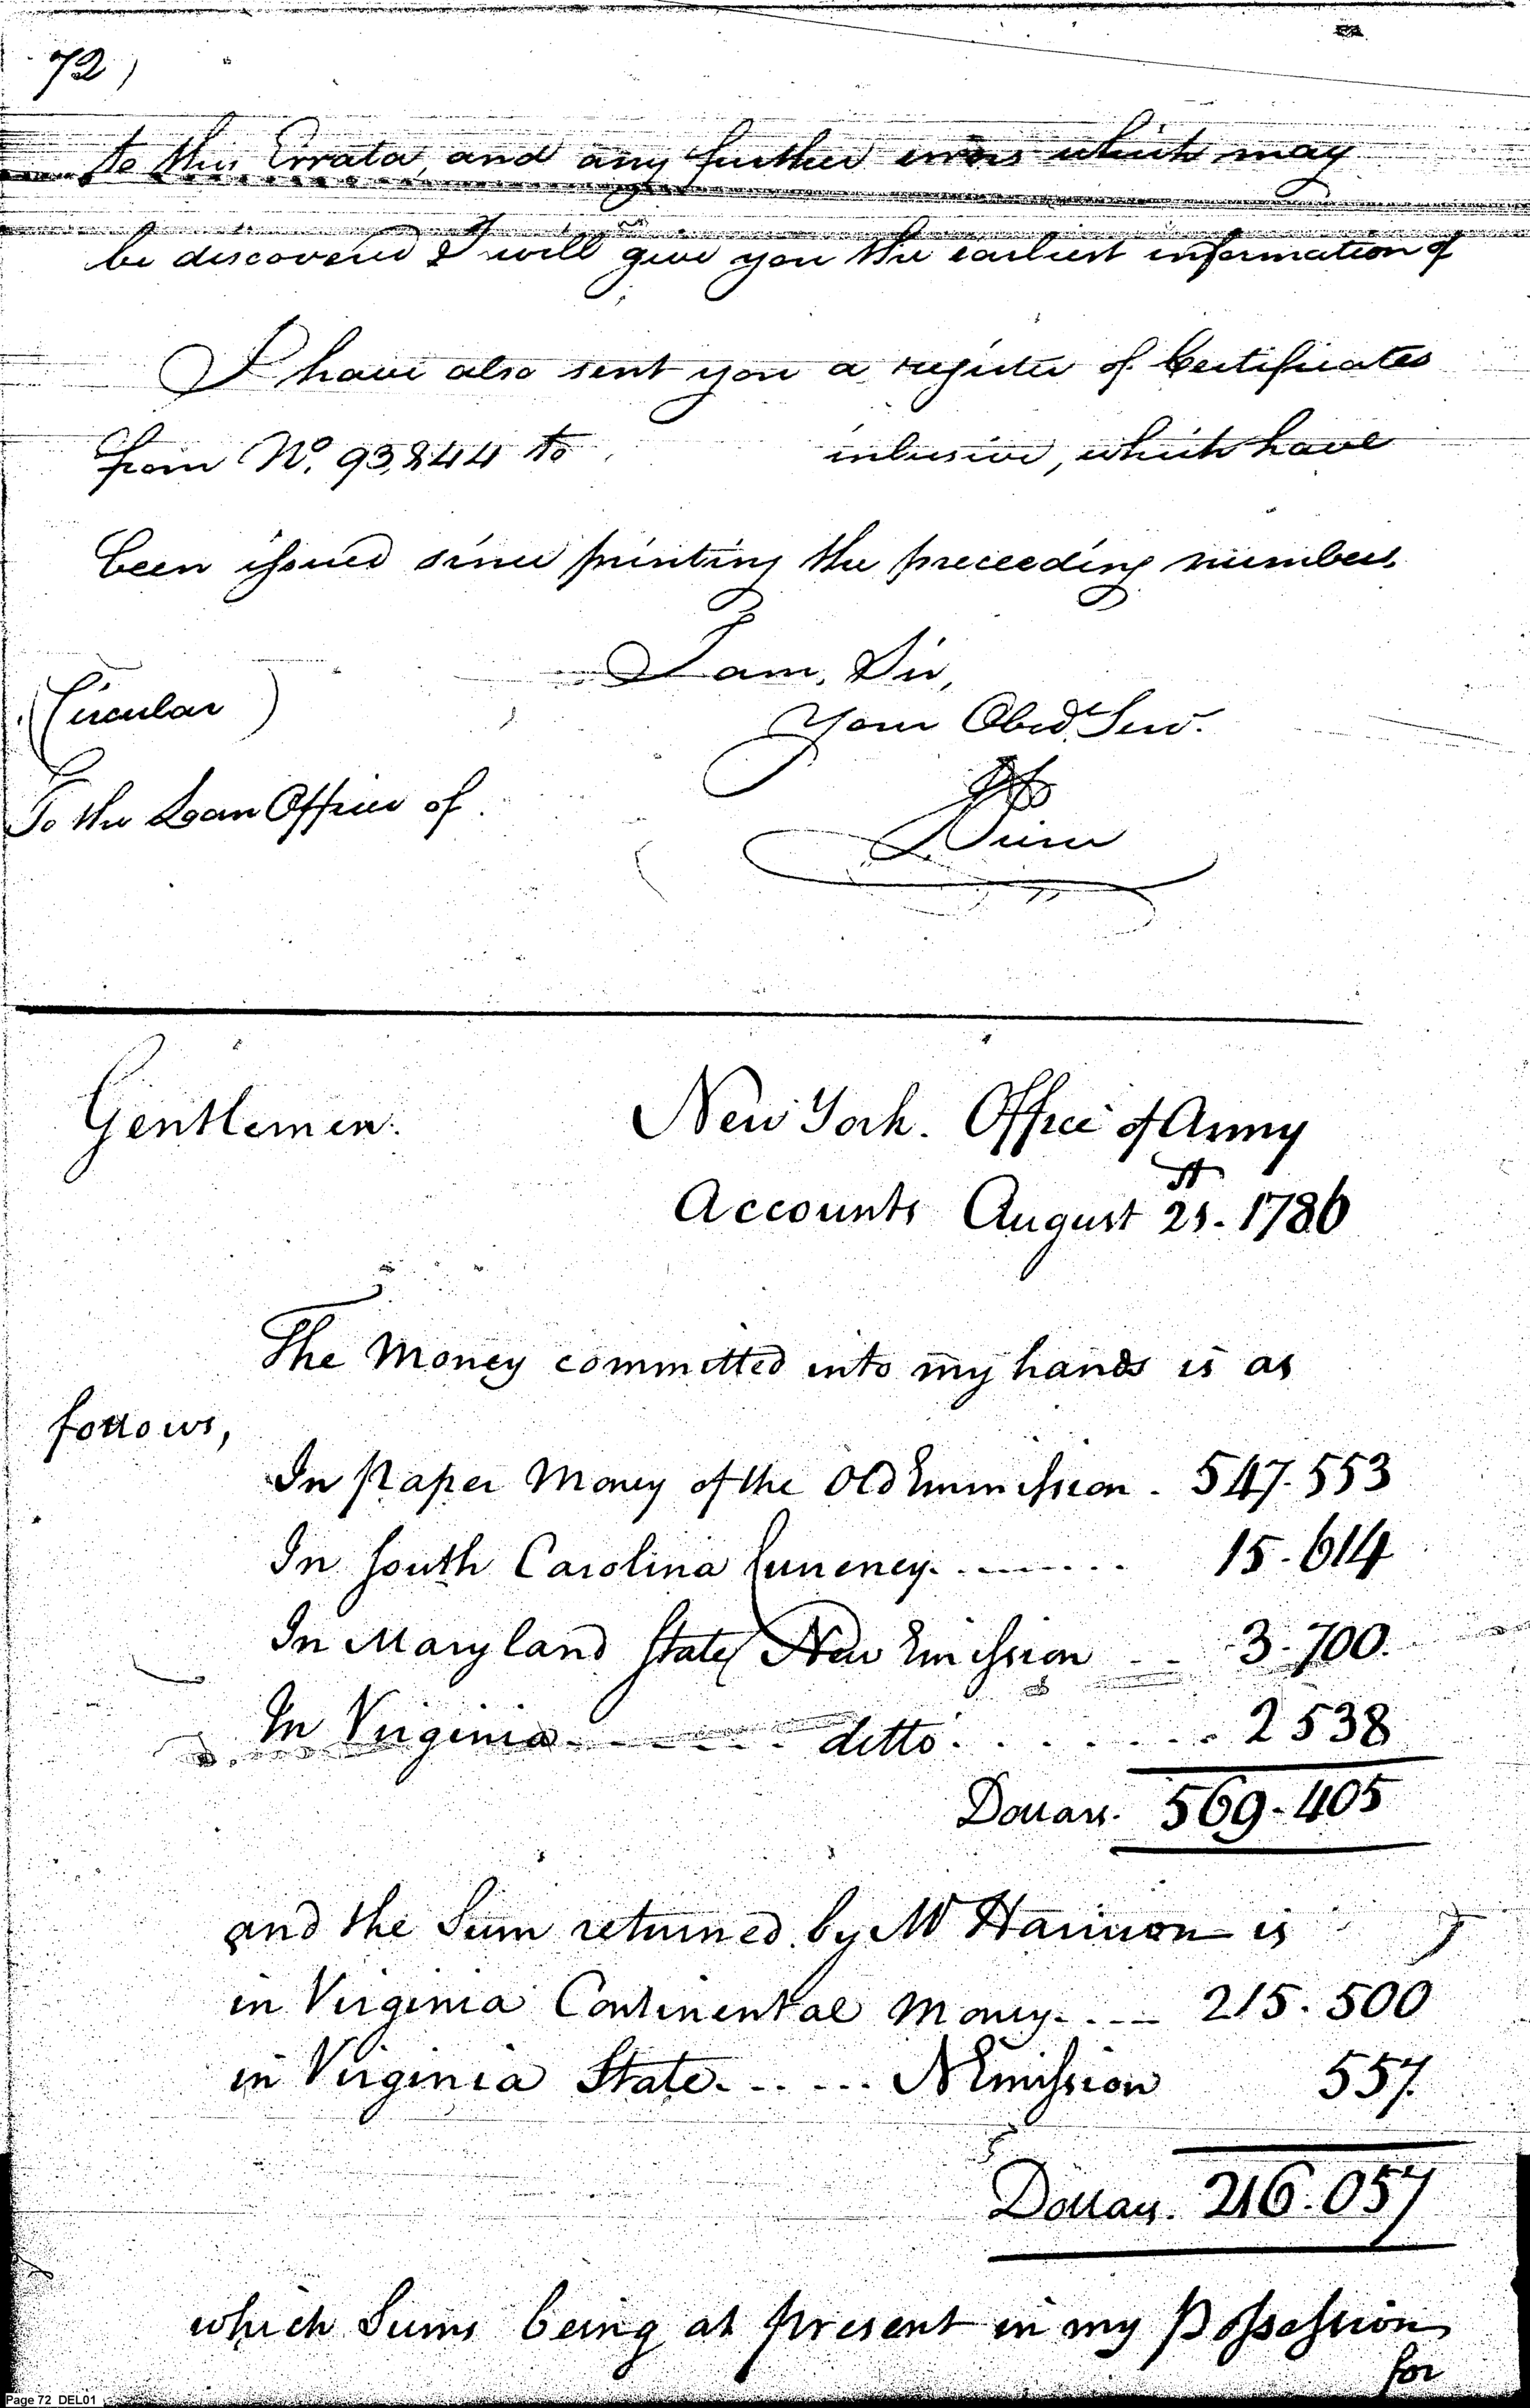 72)
to this Errata, and any further errors which may
be discovered I will give you the earliest information of
I have also sent you a register of Certificates
from No. 93,844 to inlusive, which have
been issued since printing the preceeding numbers.
I am, Sir,
(Circular)
Your Obed.t Serv.
To the Loan Officer of
Pierce
Gentlemen.
New York. Office of Army
Accounts August 21st. 1786
The Money committed into my hands is as
follows,
In Paper Money of the Old Emmission. 547.553
In South Carolina Currency. 15.614
In Maryland State New Emission 3.700.
In Virginia ditto 2538
Dollars. 569.405
and the Sum returned by Mr Harrison is
in Virginia Continental Money. 215.500
in Virginia State. N Emission 557.
Dollars. 216.057
which Sums being at present in my Possession
for
Page 72 DEL01